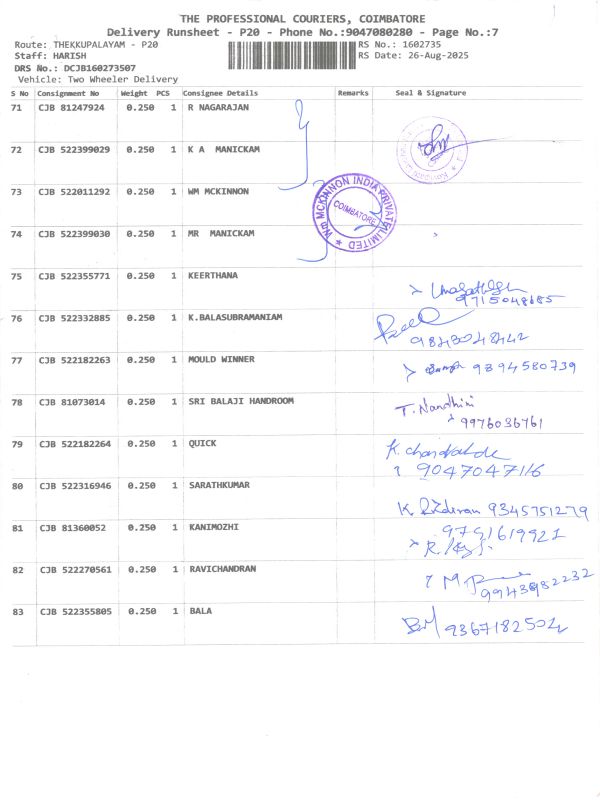 THE PROFESSIONAL COURIERS, COIMBATORE
Delivery Runsheet - P20 - Phone No.:9047080280 - Page No.:7
Route: THEKKUPALAYAM - P20 RS No.: 1602735
Staff: HARISH RS Date: 26-Aug-2025
DRS No.: DCJB160273507
Vehicle: Two Wheeler Delivery
S No Consignment No Weight PCS Consignee Details Remarks Seal & Signature
71 CJB 81247924 0.250 1 R NAGARAJAN
72 CJB 522399029 0.250 1 K A MANICKAM
73 CJB 522011292 0.250 1 WM MCKINNON
Wm MCKINNON INDIA PRIVATE LIMITED
COIMBATORE
74 CJB 522399030 0.250 1 MR MANICKAM
75 CJB 522355771 0.250 1 KEERTHANA
9715048685
76 CJB 522332885 0.250 1 K.BALASUBRAMANIAM
9843048442
77 CJB 522182263 0.250 1 MOULD WINNER 9894580739
78 CJB 81073014 0.250 1 SRI BALAJI HANDROOM T. Nandhini
9976036761
79 CJB 522182264 0.250 1 QUICK
9047047116
80 CJB 522316946 0.250 1 SARATHKUMAR
9345751279
81 CJB 81360052 0.250 1 KANIMOZHI 9751619921
82 CJB 522270561 0.250 1 RAVICHANDRAN
83 CJB 522355805 0.250 1 BALA